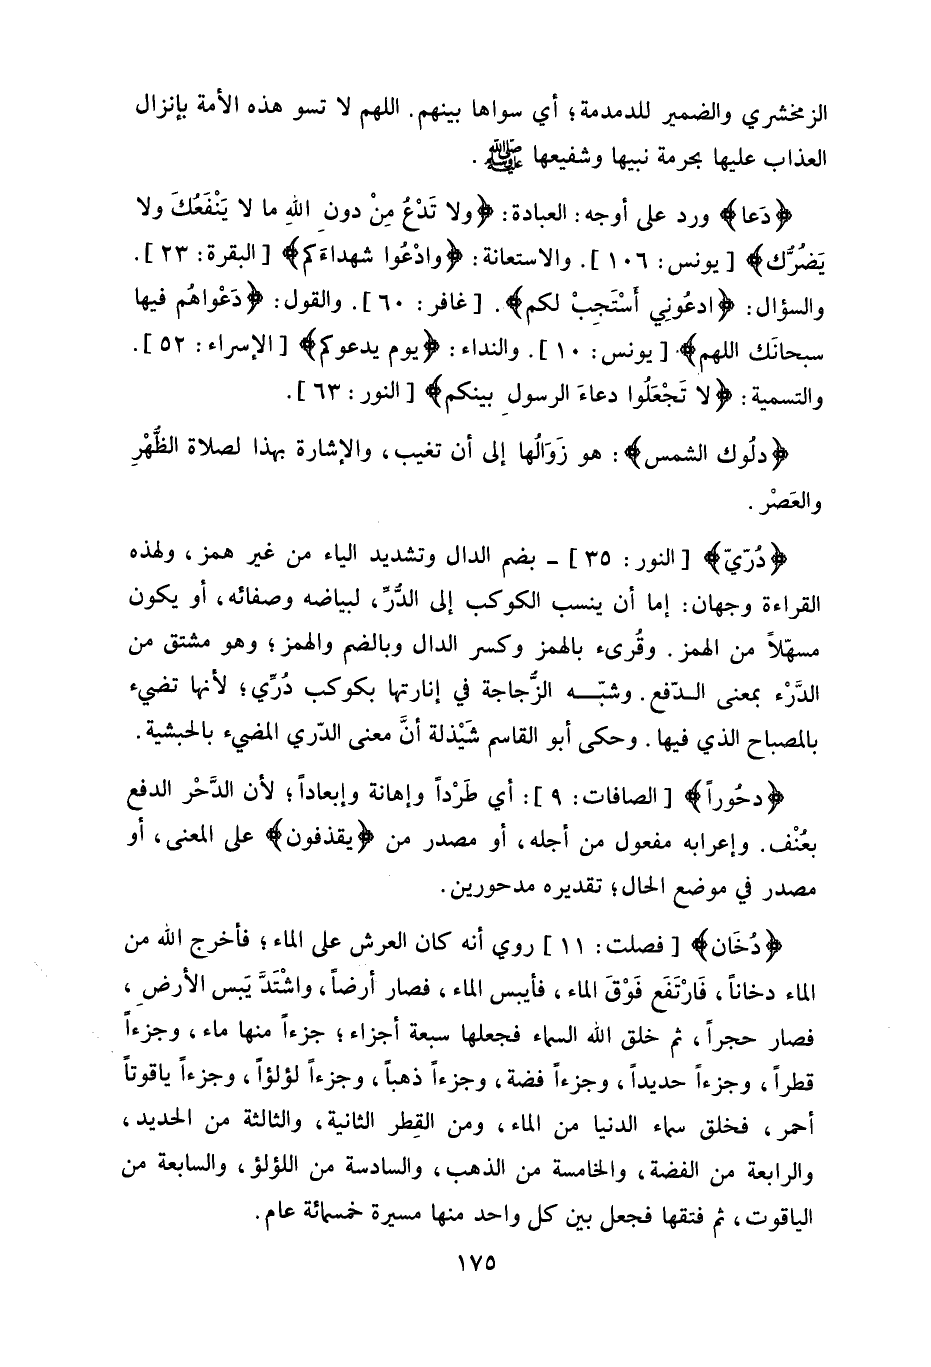 الزمخشري والضمير للدمدمة؛ أي سواها بينهم. اللهم لا تسو هذه الأمة بإنزال
العذاب عليها بحرمة نبيها وشفيعها ﷺ.
﴿دَعا﴾ ورد على أوجه: العبادة: ﴿ولا تَدْعُ مِنْ دون اللهِ ما لا يَنْفَعُكَ ولا
يَضُرُّك﴾ [يونس: ١٠٦]. والاستعانة: ﴿وادْعُوا شهداءَكم﴾ [البقرة: ٢٣].
والسؤال: ﴿ادعُونِي أَسْتَجِبْ لكم﴾. [غافر: ٦٠]. والقول: ﴿دَعْواهُم فيها
سبحانَك اللهم﴾ [يونس: ١٠]. والنداء: ﴿يوم يدعوكم﴾ [الإسراء: ٥٢].
والتسمية: ﴿لا تَجْعَلُوا دعاءَ الرسولِ بينكم﴾ [النور: ٦٣].
﴿دلُوك الشمس﴾: هو زَوَالُها إلى أن تغيب، والإشارة بهذا لصلاة الظُّهْرِ
والعَصْر.
﴿دُرّيّ﴾ [النور: ٣٥] ــ بضم الدال وتشديد الياء من غير همز، ولهذه
القراءة وجهان: إما أن ينسب الكوكب إلى الدُّرِّ، لبياضه وصفائه، أو يكون
مسهّلاً من الهمز. وقُرىء بالهمز وكسر الدال وبالضم والهمز؛ وهو مشتق من
الدَّرْء بمعنى الـدّفع. وشبّـــه الزُّجاجة في إنارتها بكوكب دُرِّي؛ لأنها تضيء
بالمصباح الذي فيها. وحكى أبو القاسم شَيْذلة أنَّ معنى الدّري المضيء بالحبشية.
﴿دحُوراً﴾ [الصافات: ٩]: أي طَرْداً وإهانة وإبعاداً؛ لأن الدَّحْر الدفع
بعُنْف. وإعرابه مفعول من أجله، أو مصدر من ﴿يقذفون﴾ على المعنى، أو
مصدر في موضع الحال؛ تقديره مدحورين.
﴿دُخَان﴾ [فصلت: ١١] روي أنه كان العرش على الماء؛ فأخرج الله من
الماء دخاناً، فَارْتَفَع فَوْقَ الماء، فأيبس الماء، فصار أرضاً، واشْتَدَّ يَبس الأرضِ،
فصار حجراً، ثم خلق الله السماء فجعلها سبعة أجزاء؛ جزءاً منها ماء، وجزءاً
قطراً، وجزءاً حديداً، وجزءاً فضة، وجزءاً ذهباً، وجزءاً لؤلؤاً، وجزءاً ياقوتاً
أحمر، فخلق سماء الدنيا من الماء، ومن القِطر الثانية، والثالثة من الحديد،
والرابعة من الفضة، والخامسة من الذهب، والسادسة من اللؤلؤ، والسابعة من
الياقوت، ثم فتقها فجعل بين كل واحد منها مسيرة خمسمائة عام.
١٧٥